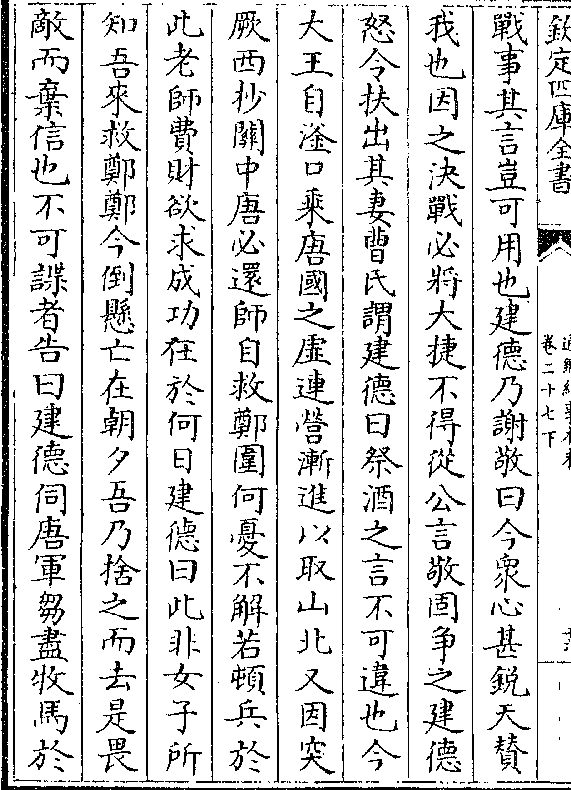 欽定四庫全書
通鑑紀事本末
卷二十七下
戰事其言豈可用也建德乃謝敬曰今衆心甚鋭天賛
我也因之決戰必將大捷不得從公言敬固争之建德
怒令扶出其妻曹氏謂建德曰祭酒之言不可違也今
大王自滏口乘唐國之虚連營漸進以取山北又因突
厥西抄關中唐必還師自救鄭圍何憂不解若頓兵於
此老師費財欲求成功在於何日建德曰此非女子所
知吾來救鄭鄭今倒懸亡在朝夕吾乃捨之而去是畏
敵而棄信也不可諜者告曰建德伺唐軍芻盡牧馬於